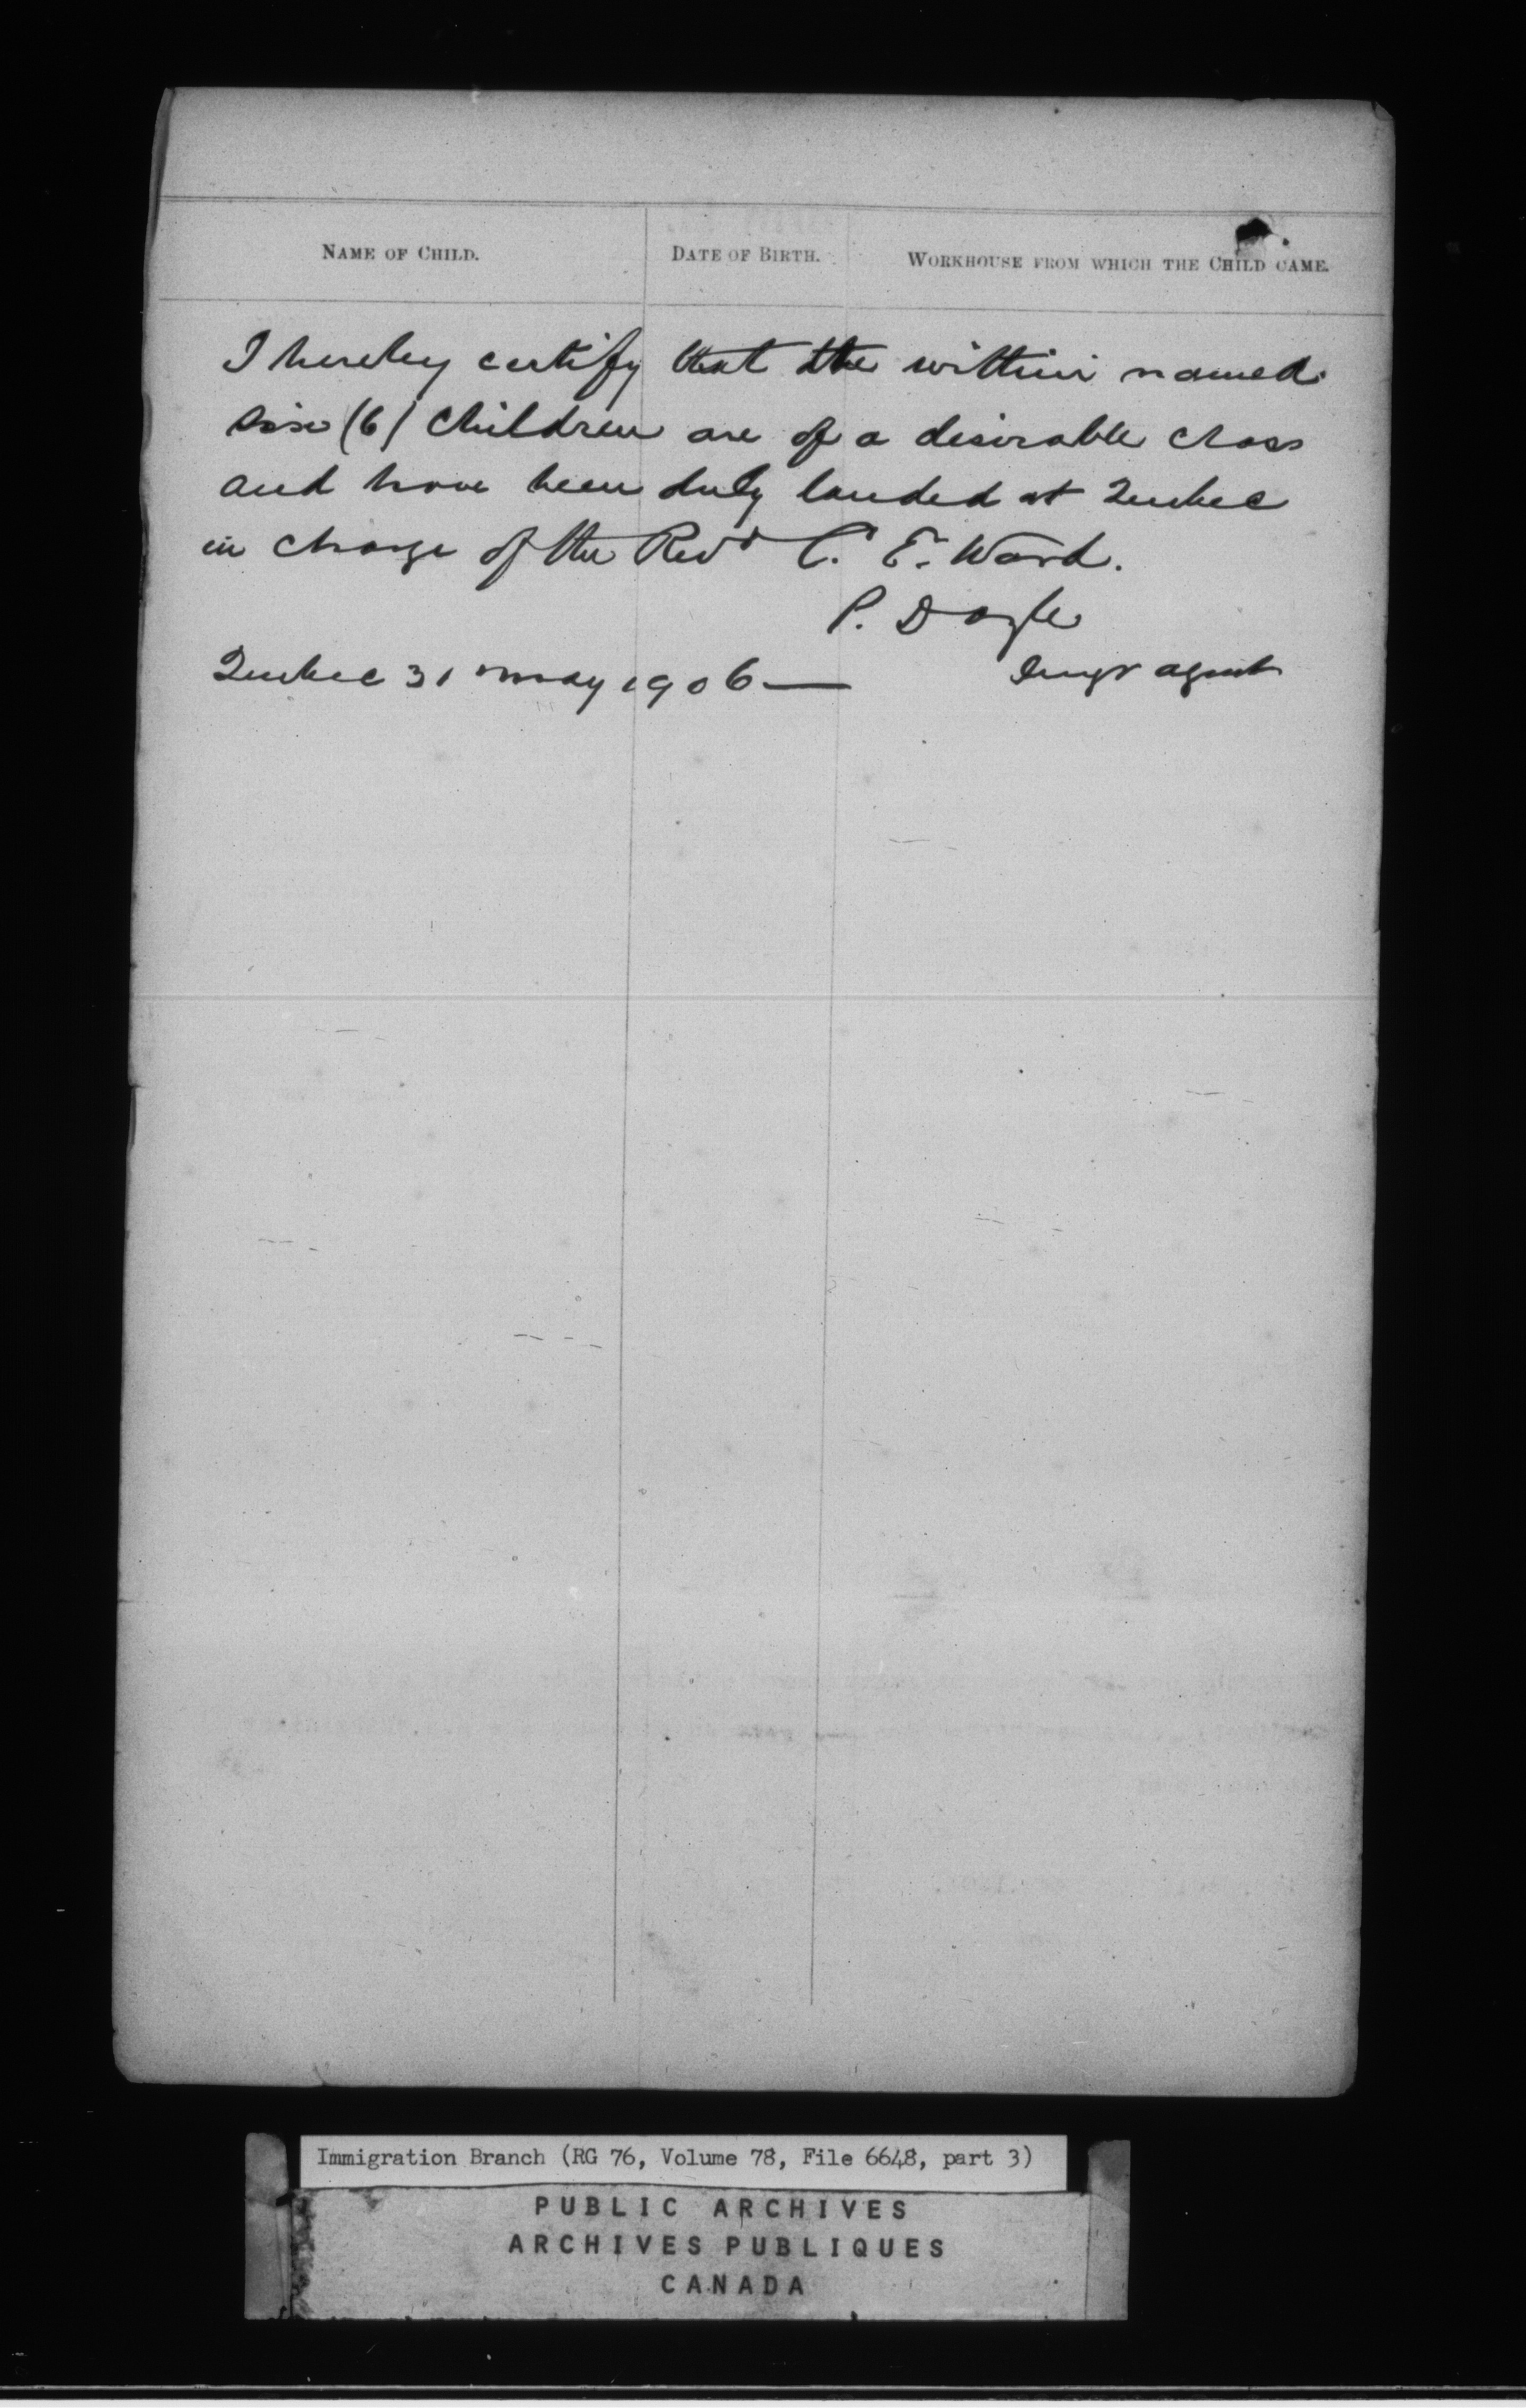 NAME OF CHILD. DATE OF BIRTH. WORKHOUSE FROM WHICH THE CHILD CAME.
I hereby certify that the within named
six (6) children are of a desirable class
and have been duly landed at Quebec
in charge of the Revd C. E. Ward.
P. Doyle
Quebec 31 may 1906— Imgr agent
Immigration Branch (RG 76, Volume 78, File 6648, part 3)
PUBLIC ARCHIVES
ARCHIVES PUBLIQUES
CANADA